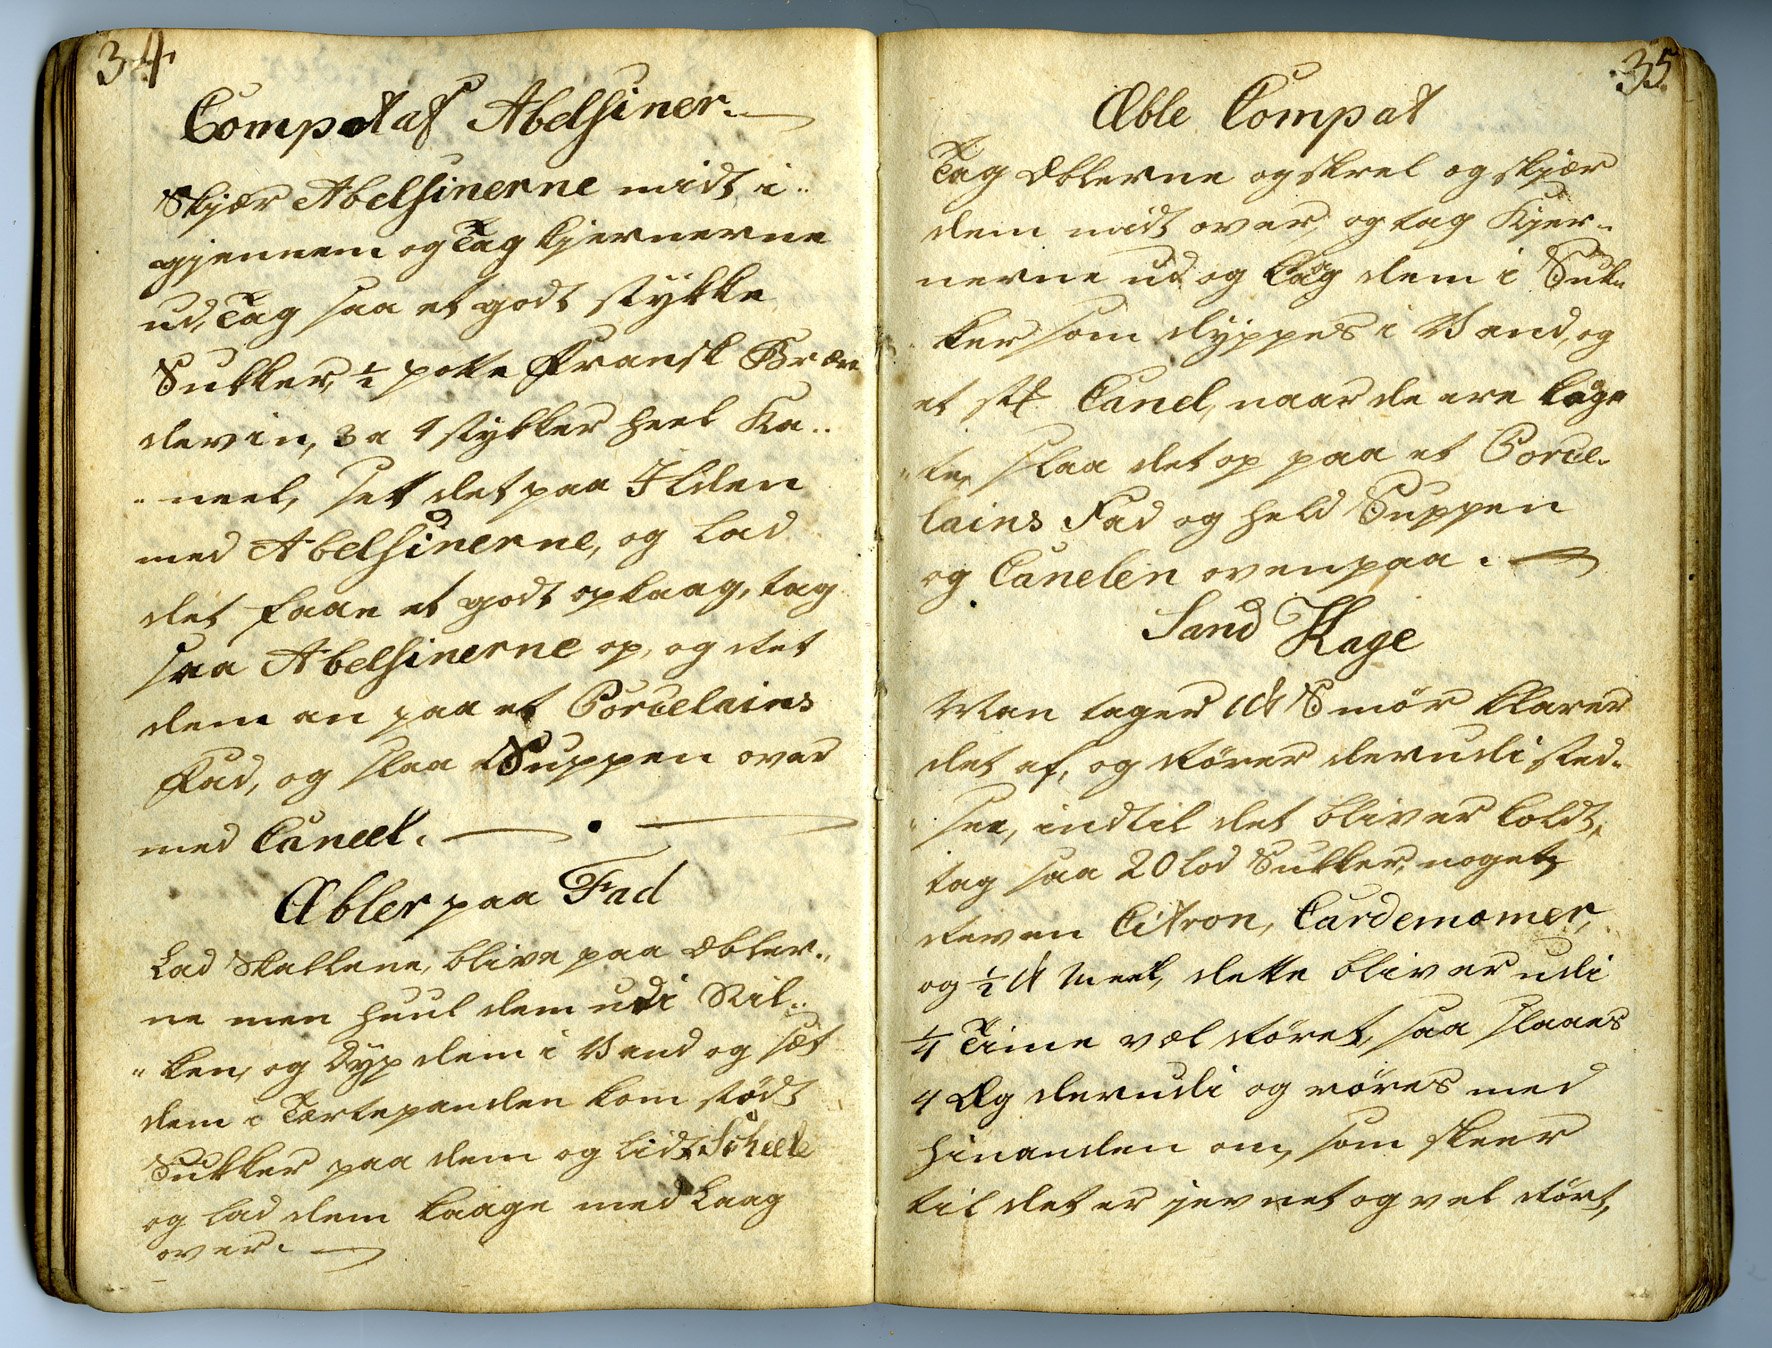 34
Compot af Abelsiner.
Skjær Abelsinerne midt i..
gjennem og Tag kjernerne
ud, Tag saa et godt stykke
Sukker, ½ potte Fransk Bræn
devin, 3 a 4 stykker heel Ka..
" neel, sett det paa Ilden
med Abelsinerne, og lad
det faae et godt opkaag, tag
saa Abelsinerne op, og Ret
dem an paa et Porcelains
Fad, og slaa Suppen over
med Caneel.
Æbler paa Fad
Lad Skallene, blive paa Æbler..
ne men huul dem udi Stil..
" ken, og Dyp dem i Vand og sæt
dem i Tærtepanden kom stødt
Sukker paa dem og lidt
og lad dem kaage med Laag
over.
35.
Æble Compot
Tag Æblerne og skrel og skjær
dem midt over, og tag Kjer..
nerne ud og kog dem i Suk..
ker som dyppes i Vand, og
et st Canel, naar de ere kog
" te, slaa det op paa et Porce..
lains Fad og held Suppen
og Canelen ovenpaa.
Sand Kage
Man tager 1 ℔ Smør klarer
det af, og Rører derudi sted..
" see, indtil det bliver koldt,
tag saa 20 lod Sukker, noget
Reven Citron, Cardemomer,
og ½ ℔ Meel, dette bliver udi
¼ Time vel Røret, saa slaaes
4 Æg derudi og røres med
hinanden om, som skeer
til det er jevnet og vel Rørt,